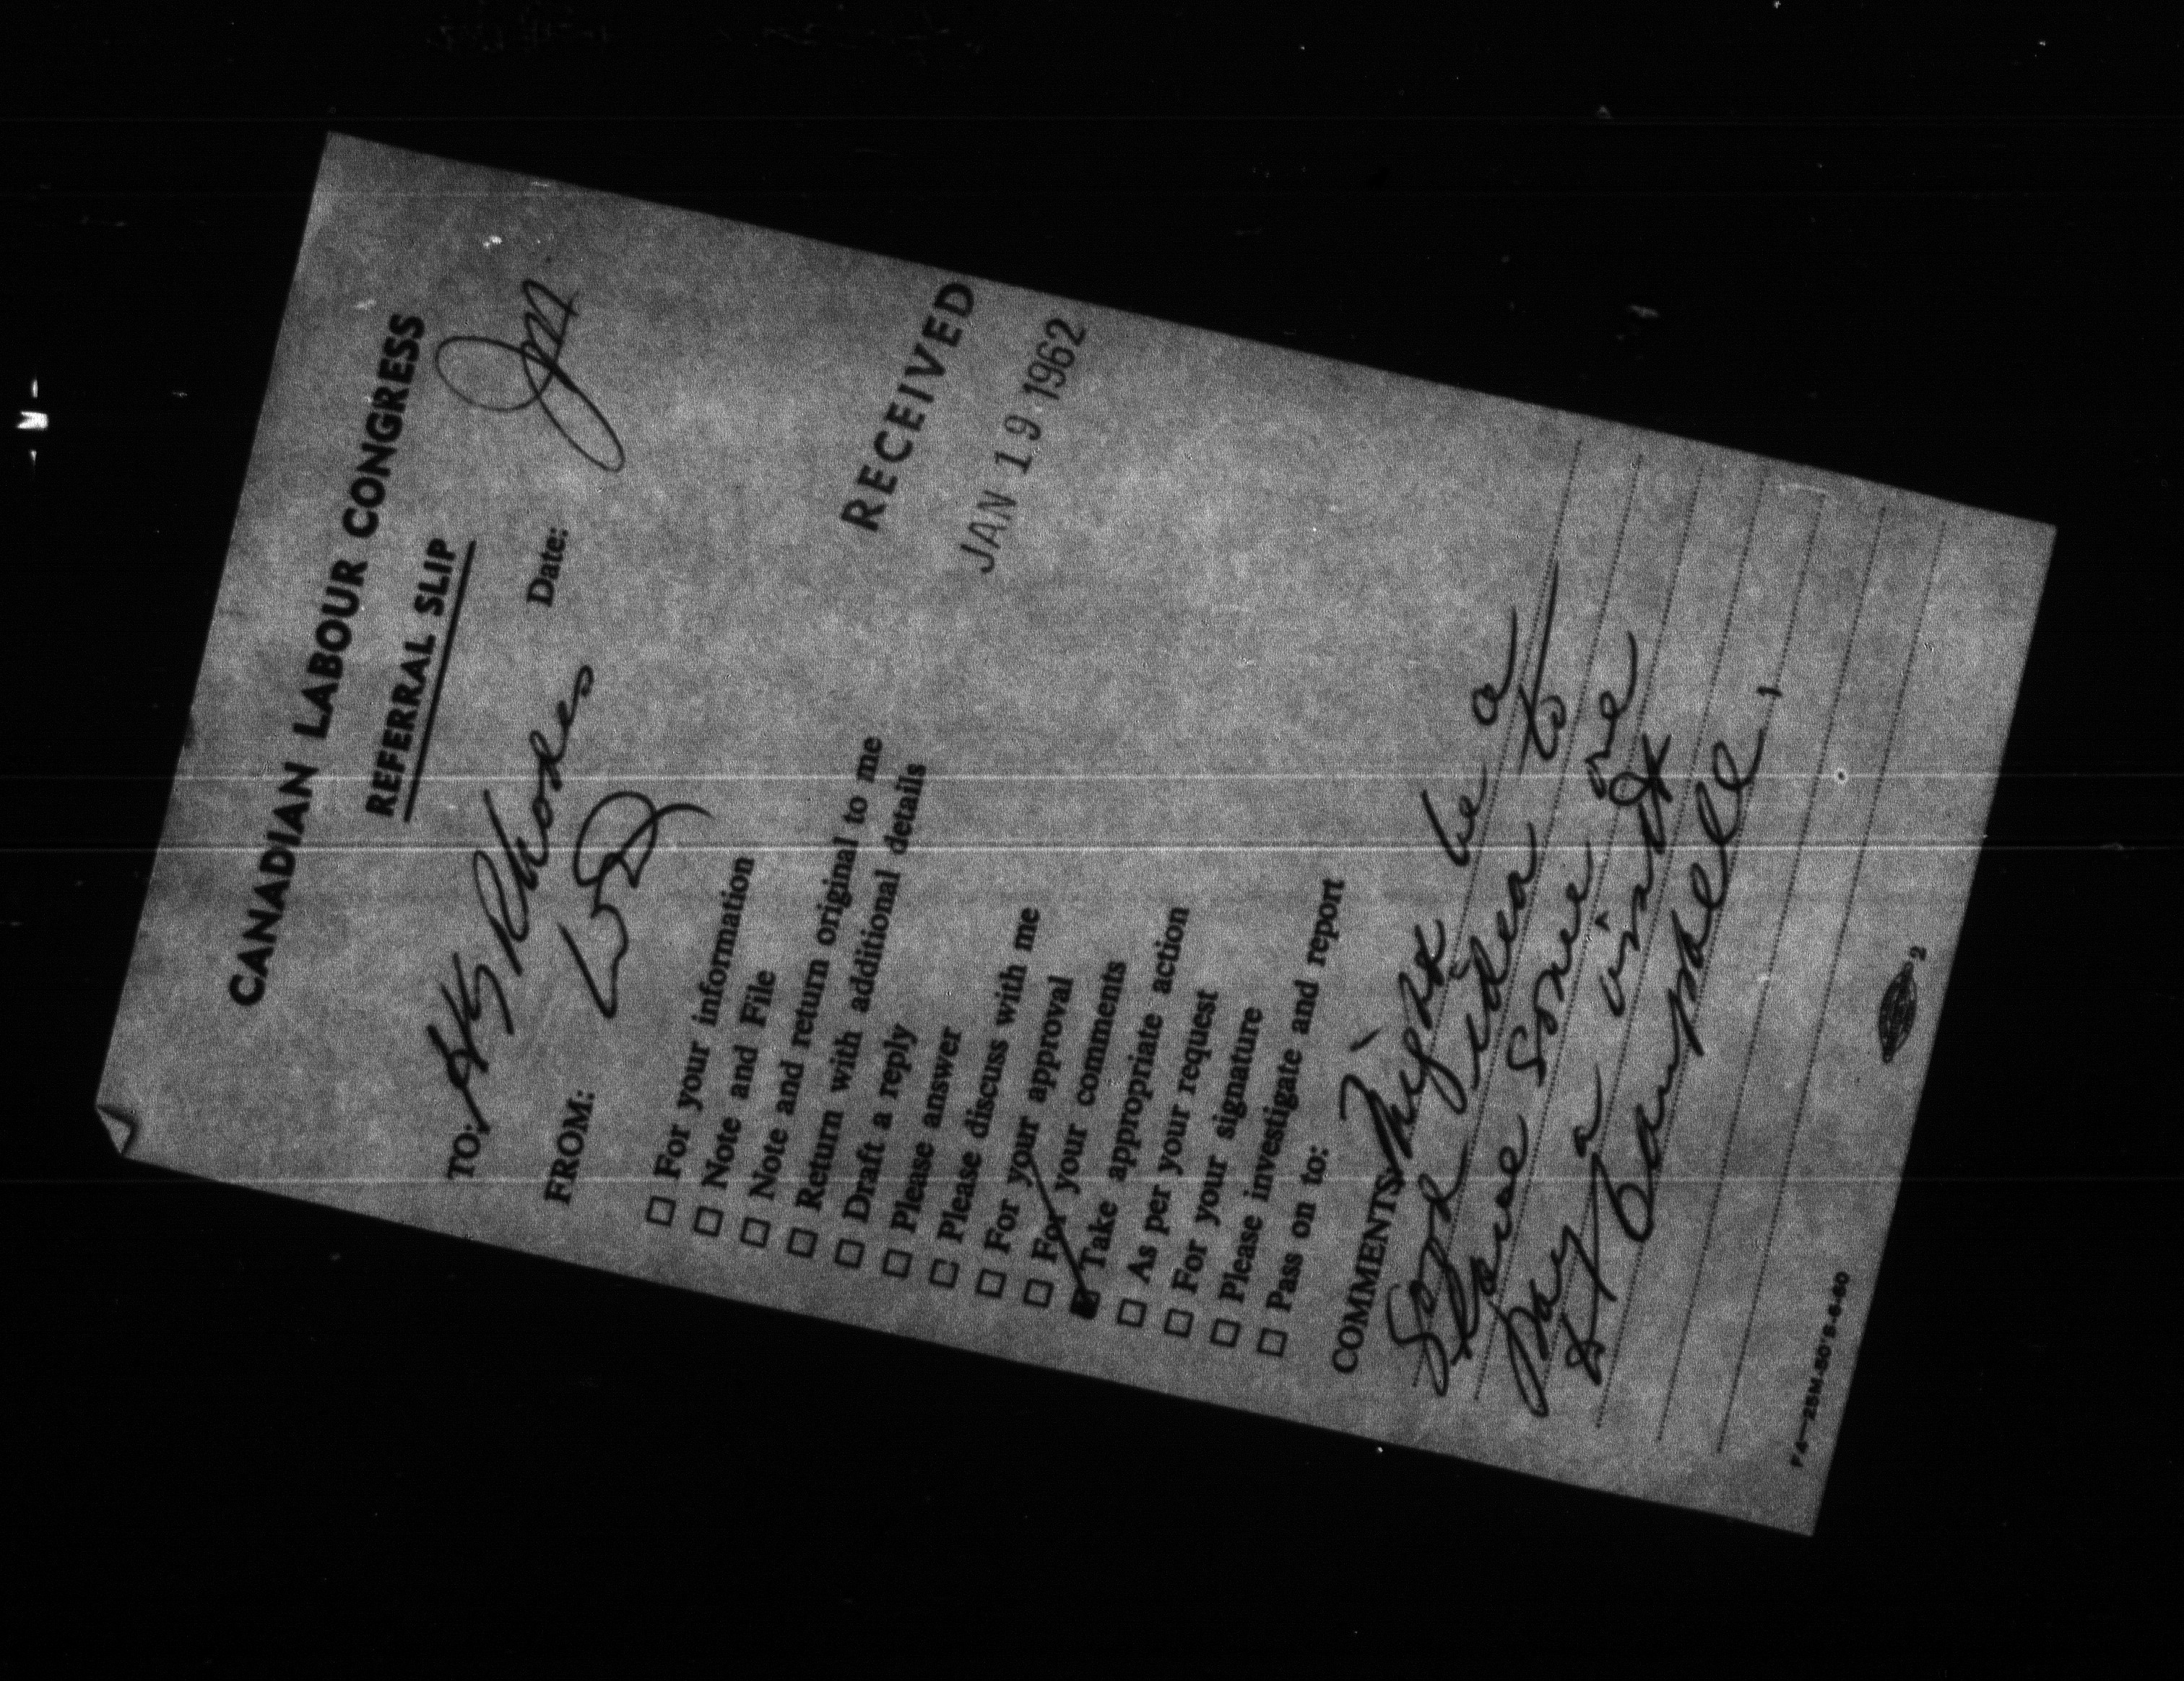 CANADIAN LABOUR CONGRESS
REFERRAL SLIP
TO: Rhodes Date:
FROM:
☐ For your information
☐ Note and File
☐ Note and return original to me
☐ Return with additional details
☐ Draft a reply
☐ Please answer
☐ Please discuss with me
☐ For your approval
☐ For your comments
☑ Take appropriate action
☐ As per your request
☐ For your signature
☐ Please investigate and report
☐ Pass on to:
RECEIVED
JAN 19 1962
COMMENTS Might be a
good idea to
have some one
pay a visit
to Campbell.
2